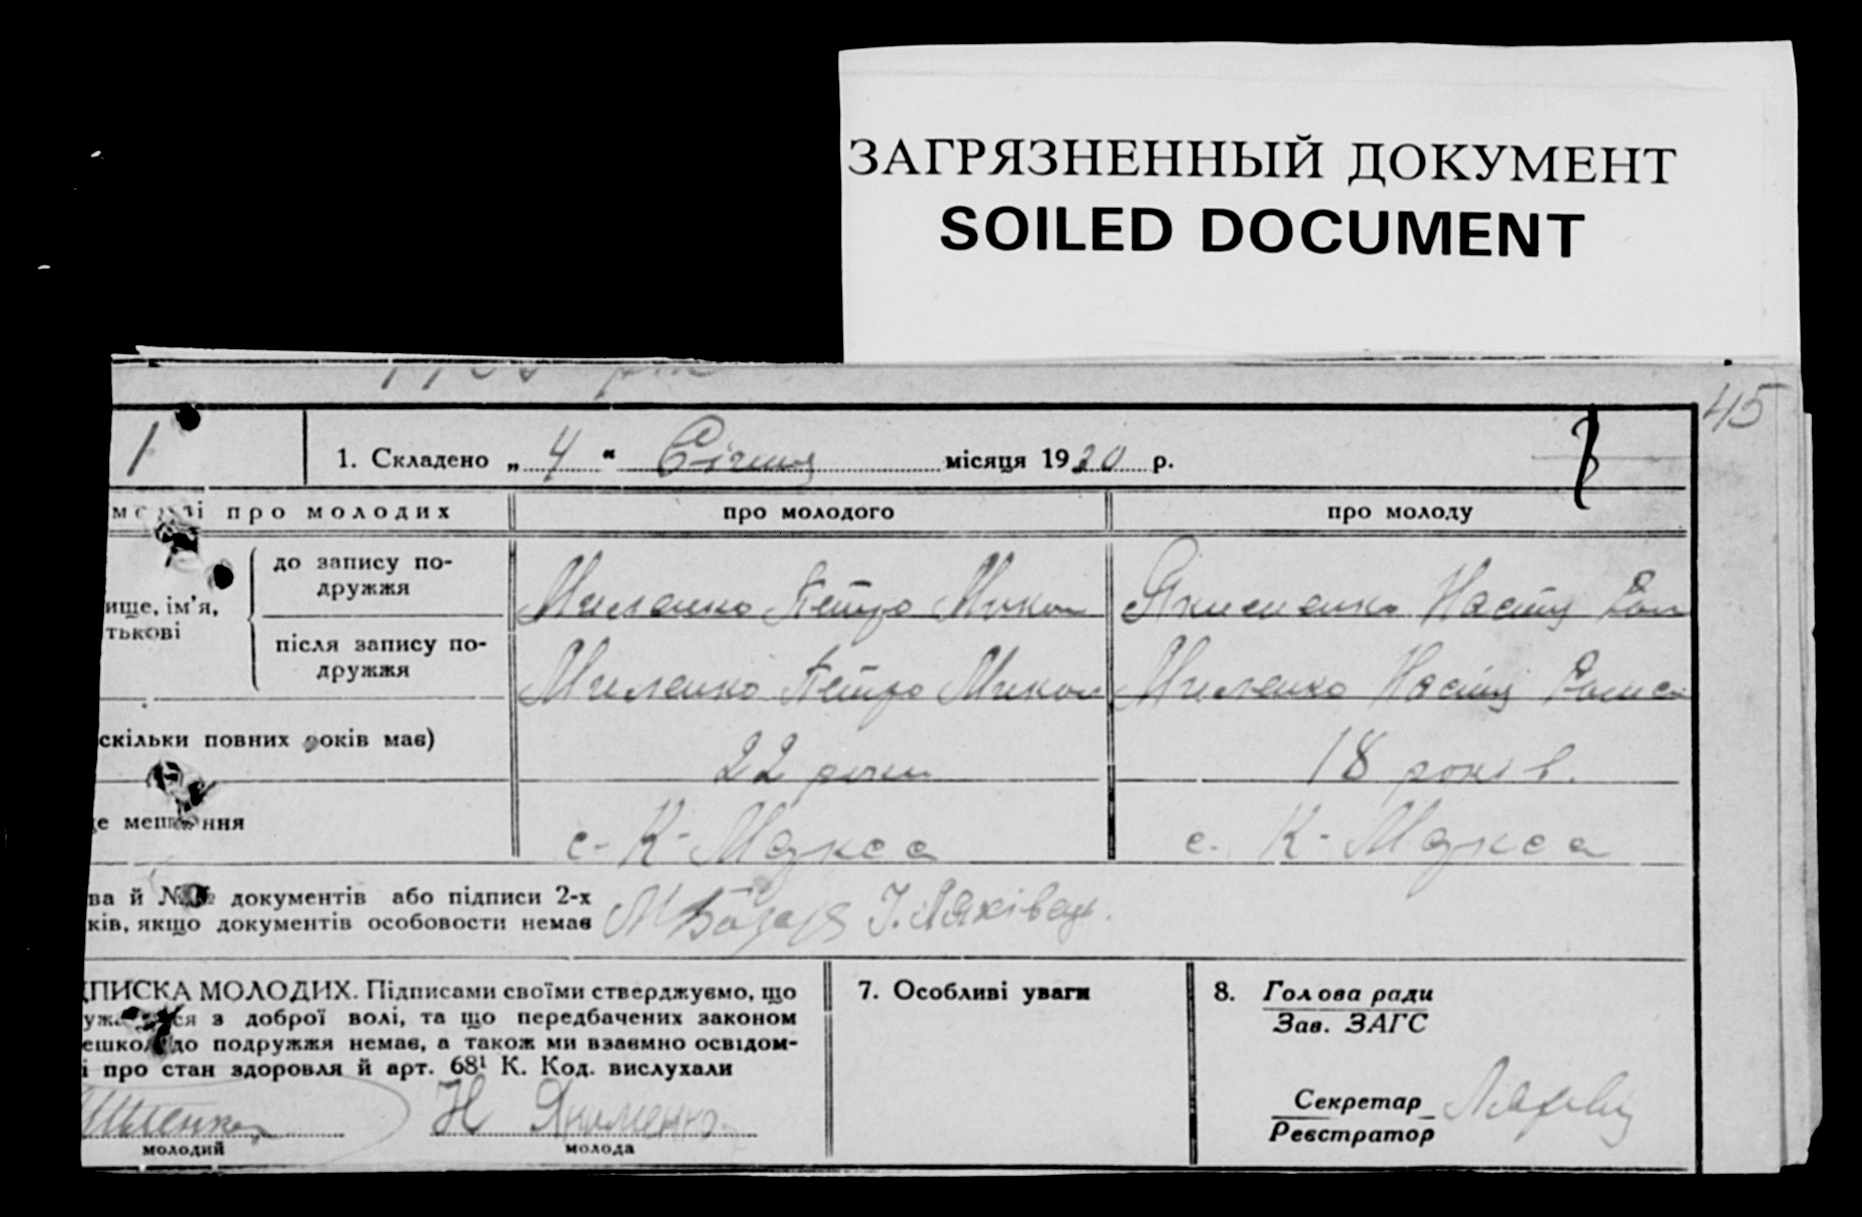 ЗАГРЯЗНЕННЫЙ ДОКУМЕНТ
SOILED DOCUMENT
45
1
1. Складено „ 4 “ Січня місяця 1930 р.
про молодих
про молодого
про молоду
до запису по-
дружжя
ище, ім'я,
тькові
Миленко Петро Микол
Якименко Настя Ром
після запису по-
дружжя
Миленко Петро Микол
Миленко Настя Рома
скільки повних років має)
22 роки
18 років.
е мешкання
с. К-Маркса
с. К-Маркса
ва й №№ документів або підписи 2-х
ків, якщо документів особовости немає
І. Ляхівець.
ПИСКА МОЛОДИХ. Підписами своїми стверджуємо, що
ся з доброї волі, та що передбачених законом
ешкод до подружжя немає, а також ми взаємно освідом-
і про стан здоровля й арт. 68¹ К. Код. вислухали
Миленко
Н Якименко
молодий
молода
7. Особливі уваги
8. Голова ради
Зав. ЗАГС
Секретар
Реєстратор